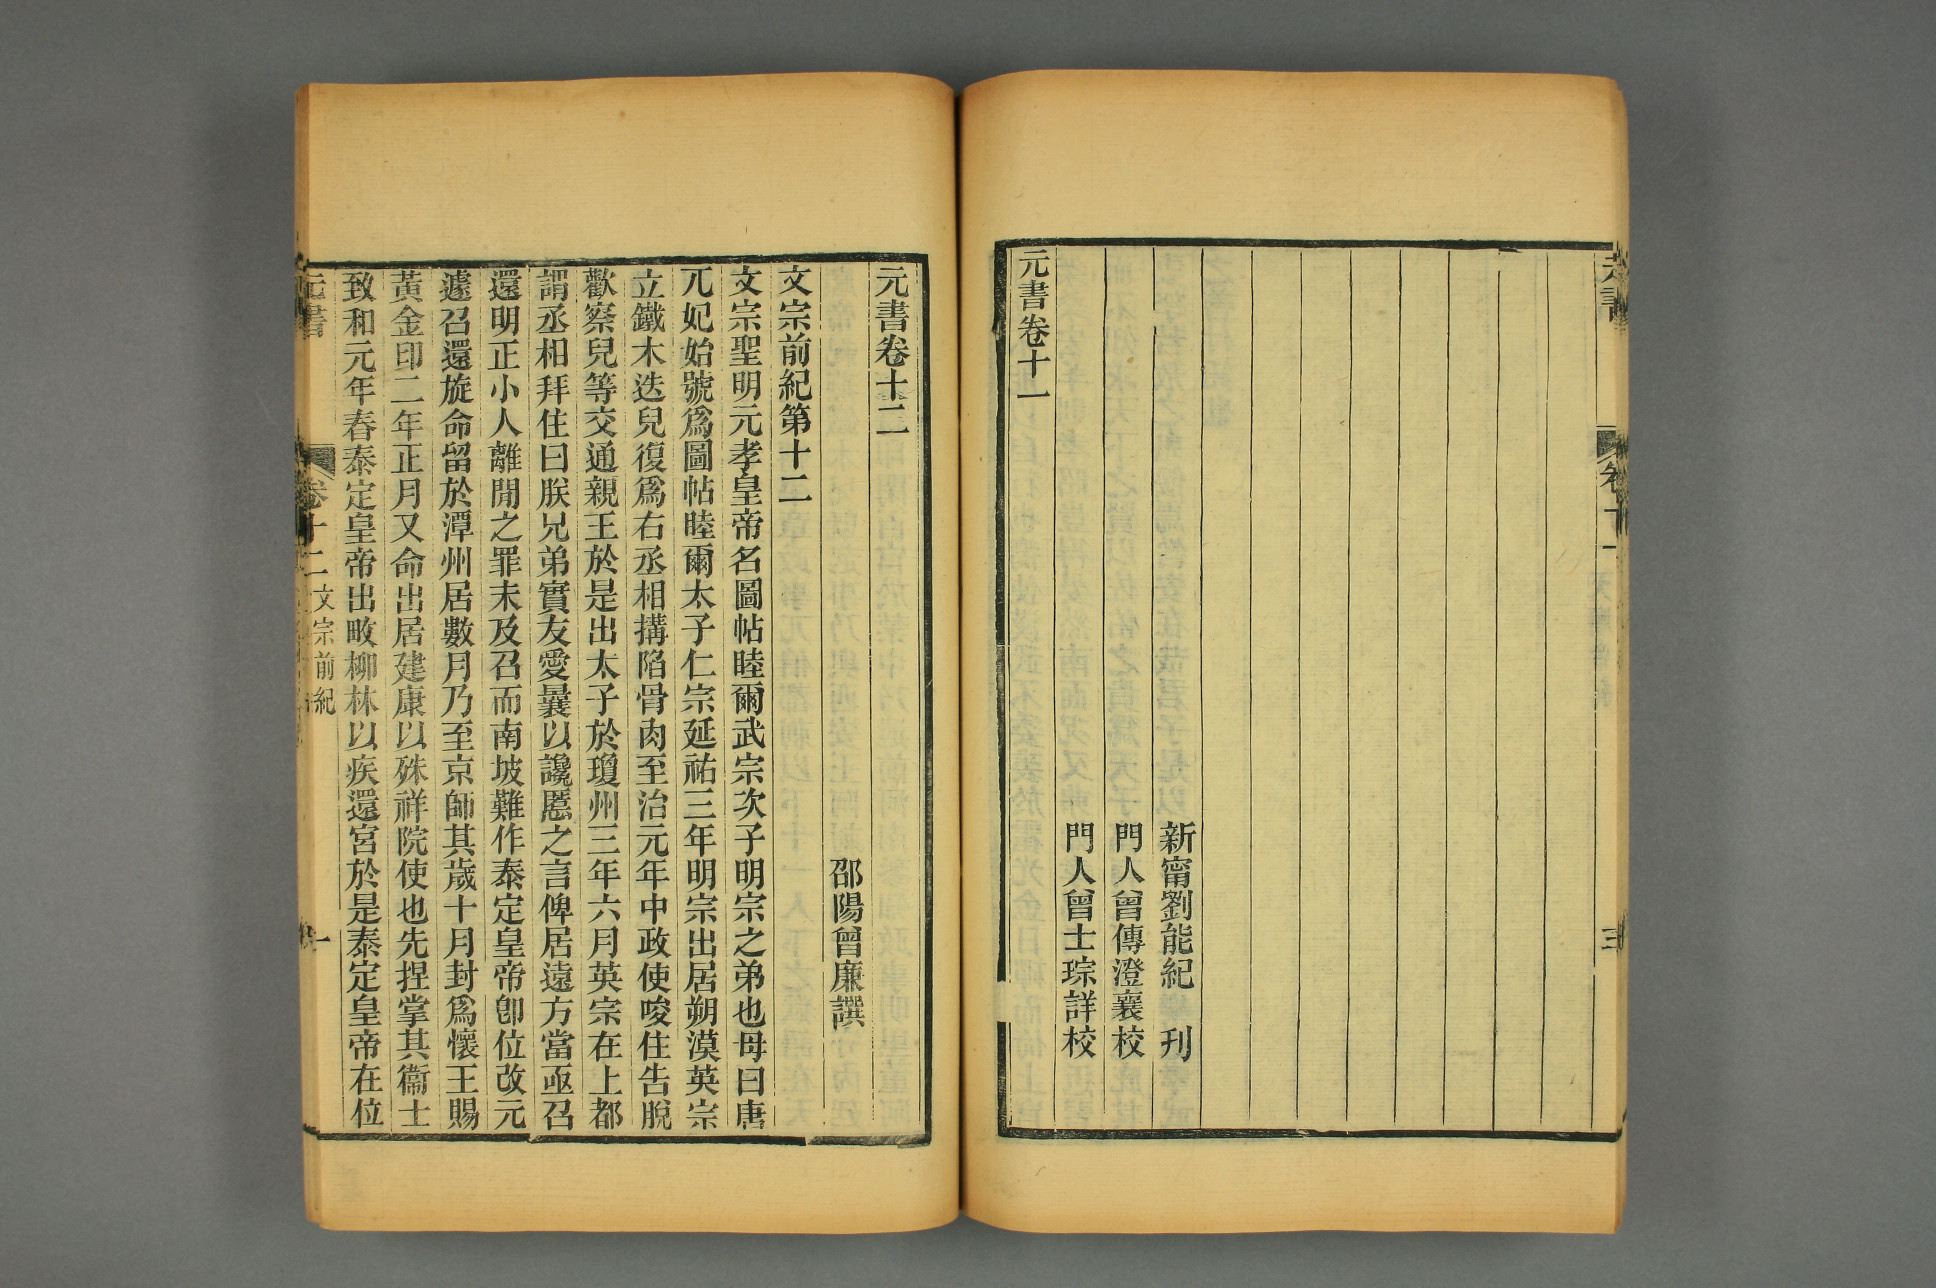 新甯劉能紀 刊
門人曾傳澄襄校
門人曾士琮詳校
元書卷十一
元書卷十二
邵陽曾廉譔
文宗前紀第十二
文宗聖明元孝皇帝名圖帖睦爾武宗次子明宗之弟也母曰唐
兀妃始號爲圖帖睦爾太子仁宗延祐三年明宗出居朔漠英宗
立鐵木迭兒復爲右丞相搆陷骨肉至治元年中政使唆住告脫
歡察兒等交通親王於是出太子於瓊州三年六月英宗在上都
謂丞相拜住曰朕兄弟實友愛曩以讒慝之言俾居遠方當亟召
還明正小人離閒之罪未及召而南坡難作泰定皇帝卽位改元
遽召還旋命留於潭州居數月乃至京師其歲十月封爲懷王賜
黃金印二年正月又命出居建康以殊祥院使也先捏掌其衞士
致和元年春泰定皇帝出畋柳林以疾還宮於是泰定皇帝在位
元書 卷十二 文宗前紀 一